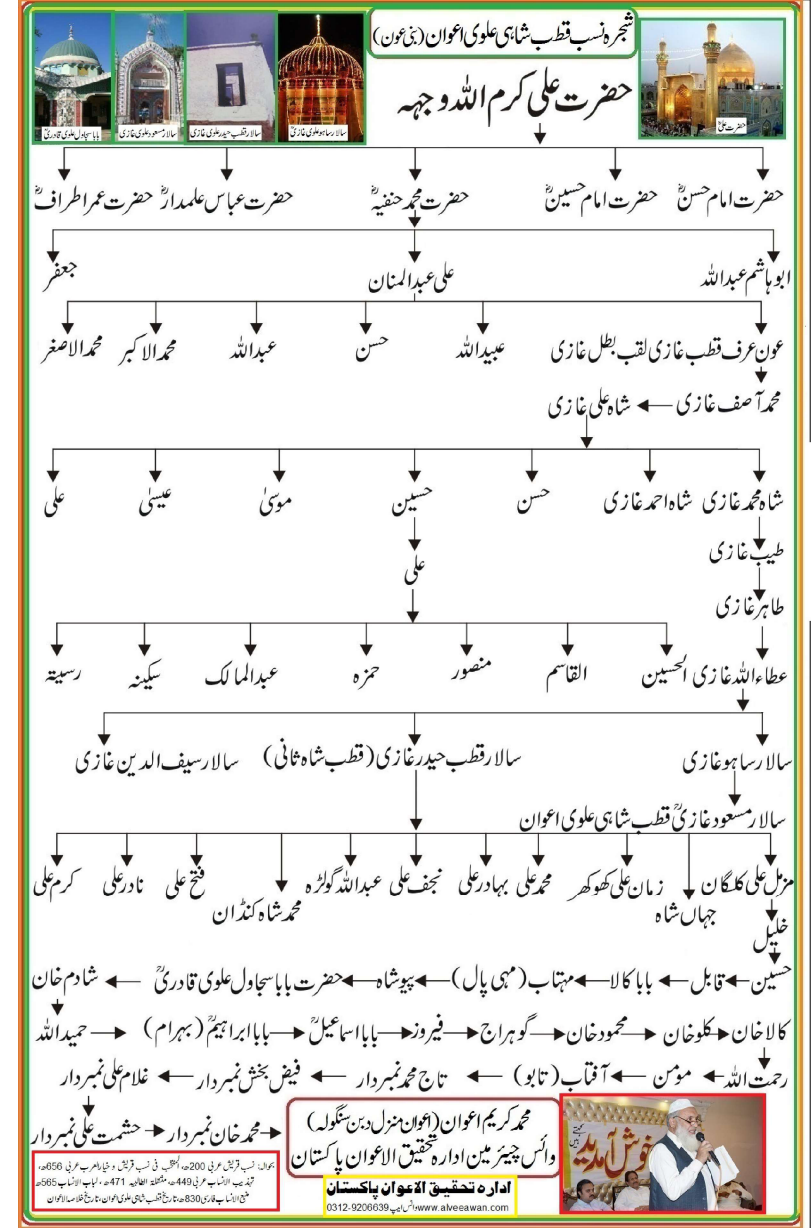 شجرہ نسب قطب شاہی علوی اعوان (بنی عون)
حضرت علی کرم اللہ وجہہ
حضرت علیؓ
سالار ساہو علوی غازیؒ
سالار قطب حیدر علوی غازی
سالار مسعود علوی غازیؒ
بابا سجاول علوی قادریؒ
حضرت امام حسنؓ حضرت امام حسینؓ حضرت محمد حنفیہؓ حضرت عباس علمدارؓ حضرت عمر اطرافؓ
ابو ہاشم عبداللہ علی عبدالمنان جعفر
عون عرف قطب غازی لقب بطل غازی عبیداللہ حسن عبداللہ محمد الاکبر محمد الاصغر
محمد آصف غازی ← شاہ علی غازی
شاہ محمد غازی شاہ احمد غازی حسن حسین موسیٰ عیسیٰ علی
طیب غازی علی
طاہر غازی
عطاء اللہ غازی الحسین القاسم منصور حمزہ عبدالمالک سکینہ رسیتہ
سالار ساہو غازی سالار قطب حیدر غازی (قطب شاہ ثانی) سالار سیف الدین غازی
سالار مسعود غازیؒ قطب شاہی علوی اعوان
مزمل علی کلگان جہاں شاہ زمان علی کھوکھر محمد علی بہادر علی نجف علی عبداللہ گولڑہ محمد شاہ کنڈان فتح علی نادر علی کرم علی
خلیل
حسین ← قابل ← بابا کالا ← مہتاب (مہی پال) ← پیو شاہ ← حضرت بابا سجاول علوی قادریؒ ← شادم خان
کالا خان → کلو خان → محمود خان → گوہراج → فیروز → بابا اسماعیلؒ → بابا ابراہیمؒ (بہرام) → حمید اللہ
رحمت اللہ ← مومن ← آفتاب (تابو) ← تاج محمد نمبردار ← فیض بخش نمبردار ← غلام علی نمبردار
حشمت علی نمبردار → محمد خان نمبردار →
محمد کریم اعوان (اعوان منزل دبن سنگولہ)
وائس چیئرمین ادارہ تحقیق الاعوان پاکستان
ادارہ تحقیق الاعوان پاکستان
www.alveeawan.com وائس ایپ 0312-9206639
بحوالہ: نسب قریش عربی 200ھ، المنتخب فی نسب قریش و خیار العرب عربی 656ھ،
تہذیب الانساب عربی 449ھ، منتقلۃ الطالبیہ 471ھ، لباب الانساب 565ھ
منبع الانساب فارسی 830ھ، تاریخ قطب شاہی علوی اعوان، تاریخ خلاصہ الاعوان
خوش آمدید